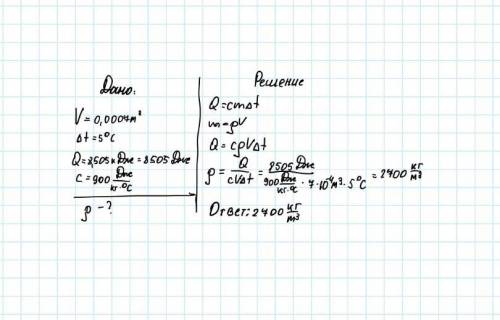 Дано:
V = 0,0007 м³
Δt = 5°C
Q = 8505 кДж = 8505 Дж
c = 900 Дж/кг·°C
ρ - ?
Решение
Q = cmΔt
m = ρV
Q = cρVΔt
ρ = Q/cVΔt = 8505 Дж/900 Дж/кг·°C · 7·10⁻⁴ м³ · 5°C = 2700 кг/м³
Ответ: 2700 кг/м³